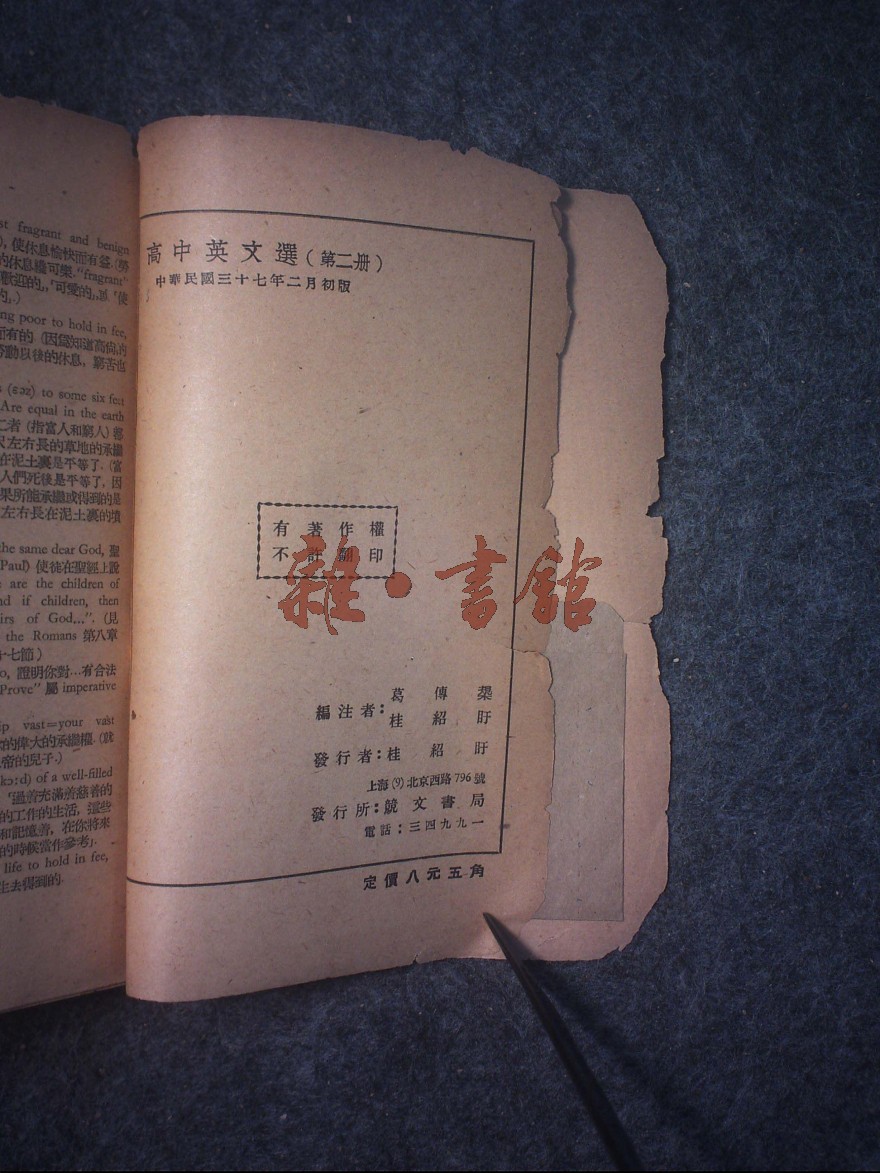 st fragrant and benign
使休息愉快而有益.(勞
的休息纔可樂."fragrant"
歡迎的」,「可愛的」,
的」.)
ng poor to hold in fee,
而有的
勞動以後的休息,窮苦也
to some six feet
Are equal in the earth
二者(指富人和窮人)都
尺左右長的草地的承繼
在泥土裏是平等了.(富
人們死後是平等了,因
果所能承繼或得到的是
左右長在泥土裏的墳
the same dear God, 聖
Paul) 使徒在聖經上說
e are the children of
nd if children, then
irs of God...". (見
the Romans 第八章
十七節)
o, 證明你對…有合法
Prove" 屬 imperative
ip vast=your vast
的偉大的承繼權.(就
上帝的兒子.)
kɔ:d) of a well-filled
「過着充滿着慈善的
的工作的生活,這些
和記憶着,在你將來
的時候當作參考」.
life to hold in fee,
生去得到的.
高中英文選(第二册)
中華民國三十七年二月初版
有著作權
不許翻印
雜·書館
編注者:葛傳槼
桂紹盱
發行者:桂紹盱
上海(9)北京西路796號
發行所:競文書局
電話:三四九九一
定價八元五角